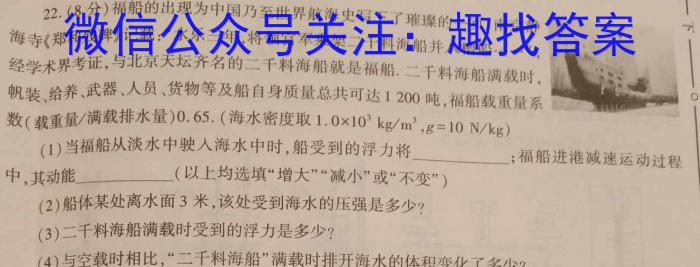 22.(8分)福船的出现为中国乃至世界航海史写下了璀璨的
微信公众号关注：趣找答案
海寺《郑和
经学术界考证,与北京天坛齐名的二千料海船就是福船.二千料海船满载时,
帆装、给养、武器、人员、货物等及船自身质量总共可达1 200 吨,福船载重量系
数(载重量/满载排水量)0.65.(海水密度取1.0×10³ kg/m³,g=10 N/kg)
(1)当福船从淡水中驶入海水中时,船受到的浮力将________;福船进港减速运动过程
中,其动能________(以上均选填“增大”“减小”或“不变”)
(2)船体某处离水面3 米,该处受到海水的压强是多少?
(3)二千料海船满载时受到的浮力是多少?
(4)与空载时相比,“二千料海船”满载时排开海水的体积变化了多少?